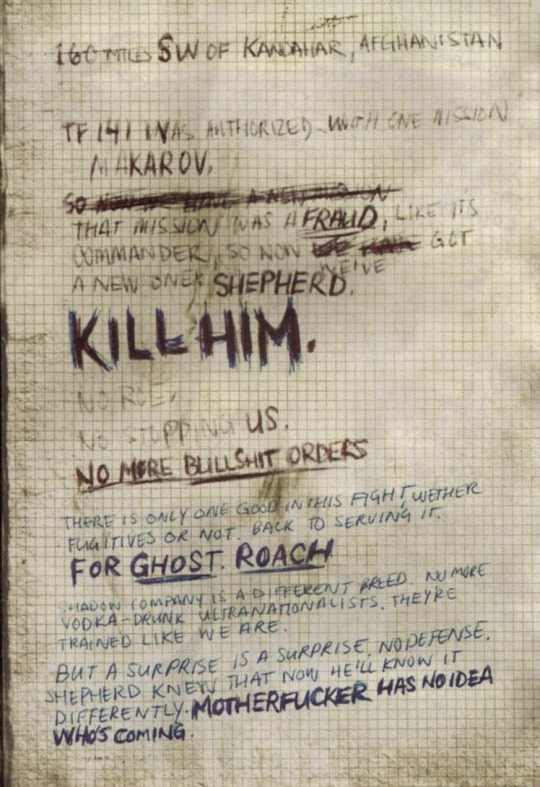 160 MILES SW OF KANDAHAR, AFGHANISTAN
TF 141 WAS AUTHORIZED WITH ONE MISSION
MAKAROV.
SO NOW WE HAVE A NEW MISSION
THAT MISSION WAS A FRAUD, LIKE ITS
COMMANDER, SO NOW WE HAVE GOT
WE'VE
A NEW ONE: SHEPHERD.
KILL HIM.
NO ROE.
NO STOPPING US.
NO MORE BULLSHIT ORDERS
THERE IS ONLY ONE GOOD IN THIS FIGHT, WETHER
FUGITIVES OR NOT. BACK TO SERVING IT.
FOR GHOST. ROACH
SHADOW COMPANY IS A DIFFERENT BREED. NO MORE
VODKA-DRUNK ULTRANATIONALISTS. THEY'RE
TRAINED LIKE WE ARE.
BUT A SURPRISE IS A SURPRISE. NO DEFENSE.
SHEPHERD KNEW THAT NOW HE'LL KNOW IT
DIFFERENTLY. MOTHERFUCKER HAS NO IDEA
WHO'S COMING.